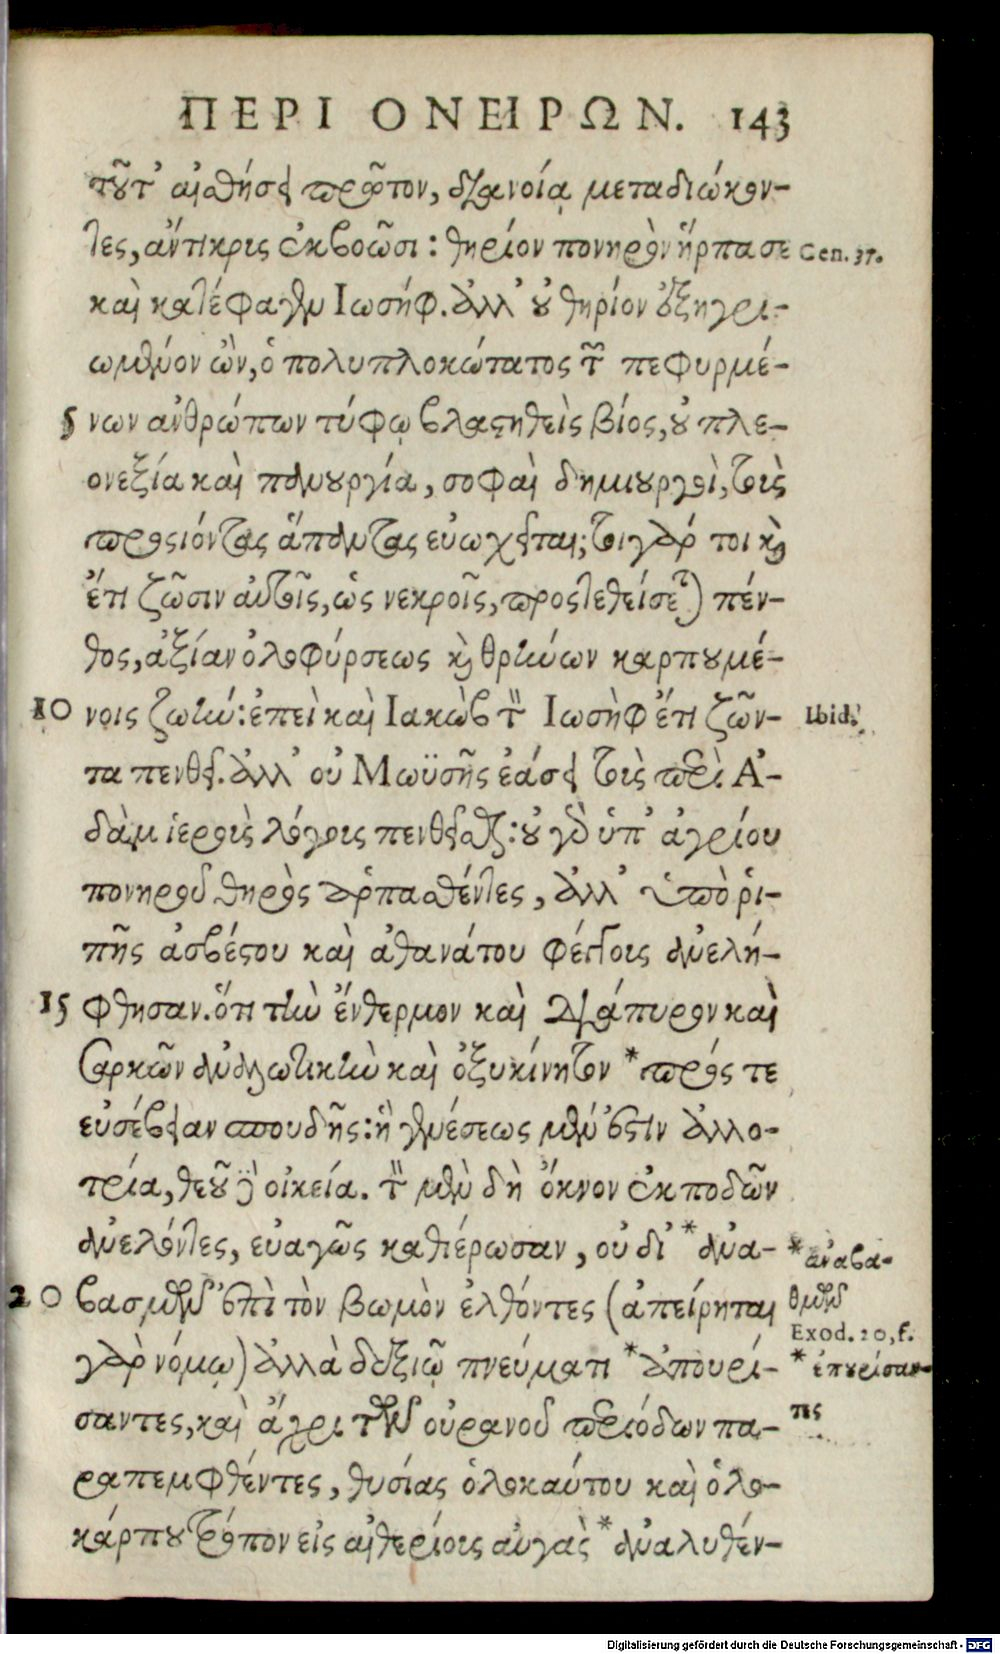 ΠΕΡΙ ΟΝΕΙΡΩΝ. 143
τοῦτ' αἰσθήσει πρῶτον, διανοίᾳ μεταδιώκον-
τες, ἄντικρις ἐκβοῶσι: θηρίον πονηρὸν ἥρπασε Gen. 37.
καὶ κατέφαγεν Ιωσήφ. ἀλλ' οὐ θηρίον ἐξηγρι-
ωμένον ὢν, ὁ πολυπλοκώτατος τῶν πεφυρμέ-
5 νων ἀνθρώπων τύφῳ βλαστηθεὶς βίος, οὗ πλε-
ονεξία καὶ πανουργία, σοφαὶ δημιουργοὶ, τοὺς
προσιόντας ἅπαντας εὐωχεῖται; τοιγάρ τοι καὶ
ἔτι ζῶσιν αὐτοῖς, ὡς νεκροῖς, προστεθείσεται πέν-
θος, ἀξίαν ὀλοφύρσεως καὶ θρήνων καρπουμέ-
10 νοις ζωήν: ἐπεὶ καὶ Ιακὼβ τὸν Ιωσὴφ ἔτι ζῶν- Ibid.
τα πενθεῖ. ἀλλ' οὐ Μωϋσῆς ἐάσει τοὺς περὶ Α'-
δὰμ ἱεροὺς λόγους πενθεῖσθαι: οὐ γὰρ ὑπ' ἀγρίου
πονηροῦ θηρὸς ἁρπασθέντες, ἀλλ' ὑπὸ ῥι-
πῆς ἀσβέστου καὶ ἀθανάτου φέγγους ἀνελή-
15 φθησαν. ὅτι τὴν ἔνθερμον καὶ διάπυρον καὶ
σαρκῶν ἀναλωτικὴν καὶ ὀξυκίνητον * πρός τε
εὐσέβειαν σπουδῆς: ἣ γενέσεως μέν ἐστιν ἀλλο-
τρία, θεοῦ δὲ οἰκεία. τὸν μὲν δὴ ὄκνον ἐκποδῶν
ἀνελόντες, εὐαγῶς καθιέρωσαν, οὐ δι' * ἀνα- * ἀναβα-
20 βασμῶν ἐπὶ τὸν βωμὸν ἐλθόντες (ἀπείρηται θμῶν
Exod. 20, f.
γὰρ νόμῳ) ἀλλὰ δεξιῷ πνεύματι * ἀπουρί- * ἐπουρίσαν-
σαντες, καὶ ἄχρι τῶν οὐρανοῦ περιόδων πα- τες
ραπεμφθέντες, θυσίας ὁλοκαύτου καὶ ὁλο-
κάρπου τρόπον εἰς αἰθερίους αὐγὰς * ἀναλυθέν-
Digitalisierung gefördert durch die Deutsche Forschungsgemeinschaft - DFG